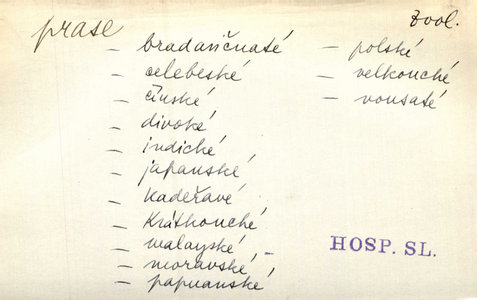 prase
zool.
– bradavičnaté
– celebeské
– čínské
– divoké
– indické
– japanské
– kadeřavé
– krátkouché
– malayské
– moravské
– papuanské
– polské
– velkouché
– vousaté
HOSP. SL.